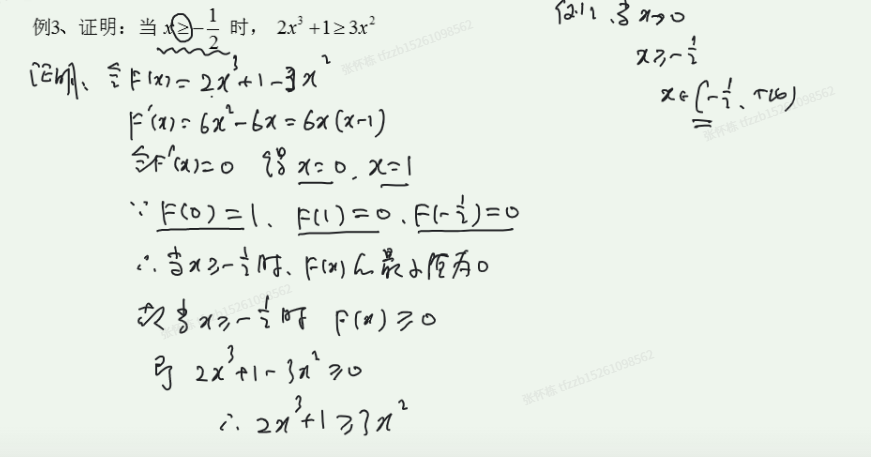 例3、证明：当 x≥-1/2 时， 2x³+1≥3x²
证明、令F(x)=2x³+1-3x²
F'(x)=6x²-6x=6x(x-1)
令F'(x)=0 得 x=0、x=1
∵ F(0)=1、F(1)=0、F(-1/2)=0
∴ 当x≥-1/2时、F(x)的最小值为0
故当x≥-1/2时 F(x)≥0
即 2x³+1-3x²≥0
∴ 2x³+1≥3x²
x≥-1/2
x∈[-1/2、+∞)
张怀栋 tfzzb15261098562
张怀栋 tfzzb15261098562
张怀栋 tfzzb15261098562
张怀栋 tfzzb15261098562